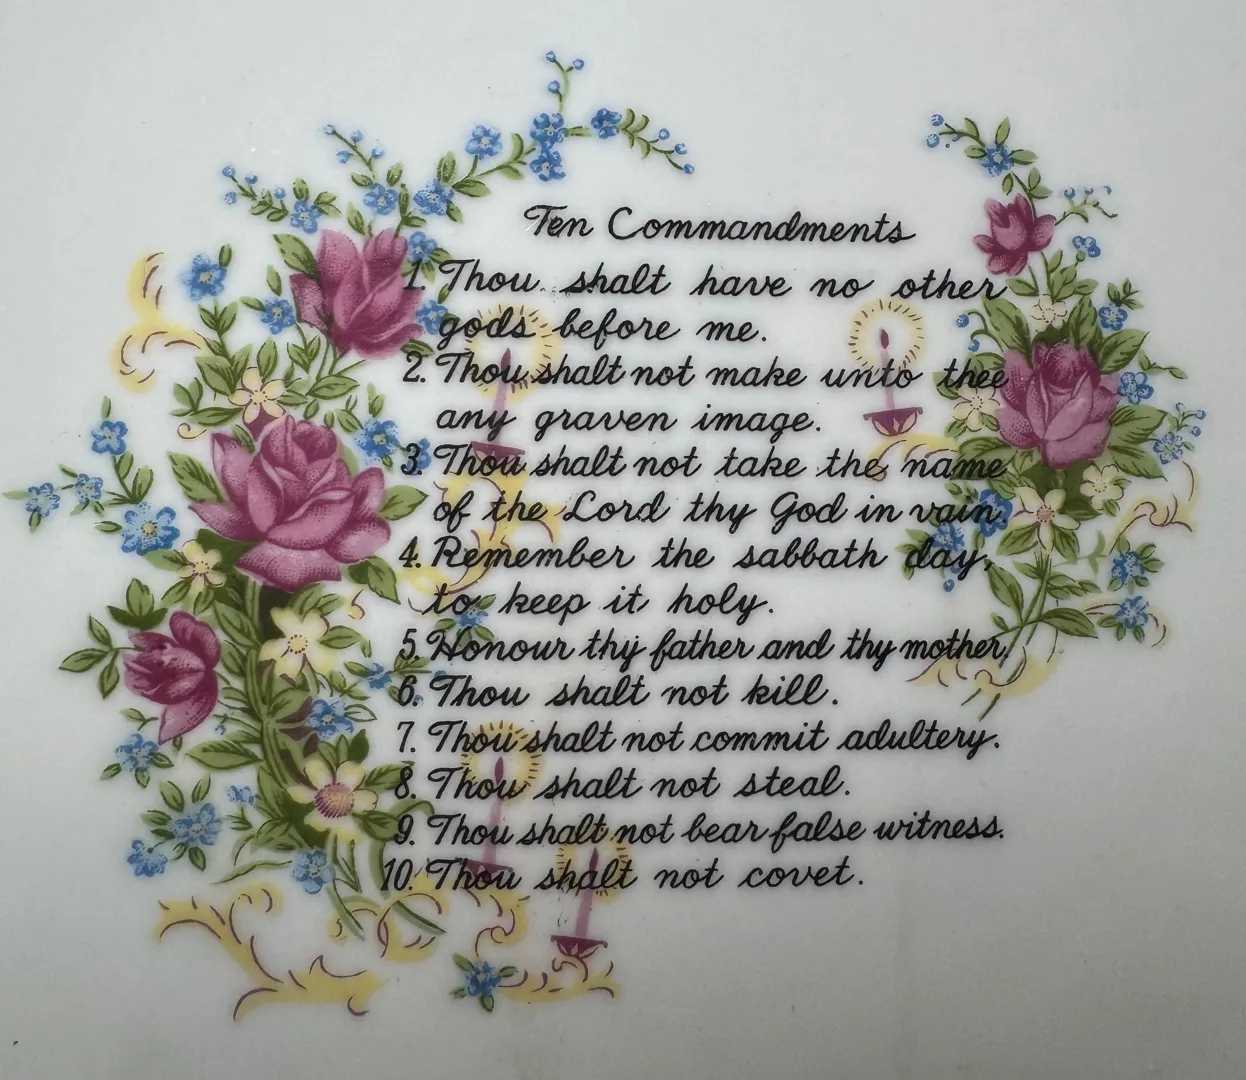 Ten Commandments
1. Thou shalt have no other
gods before me.
2. Thou shalt not make unto thee
any graven image.
3. Thou shalt not take the name
of the Lord thy God in vain.
4. Remember the sabbath day,
to keep it holy.
5. Honour thy father and thy mother.
6. Thou shalt not kill.
7. Thou shalt not commit adultery.
8. Thou shalt not steal.
9. Thou shalt not bear false witness.
10. Thou shalt not covet.